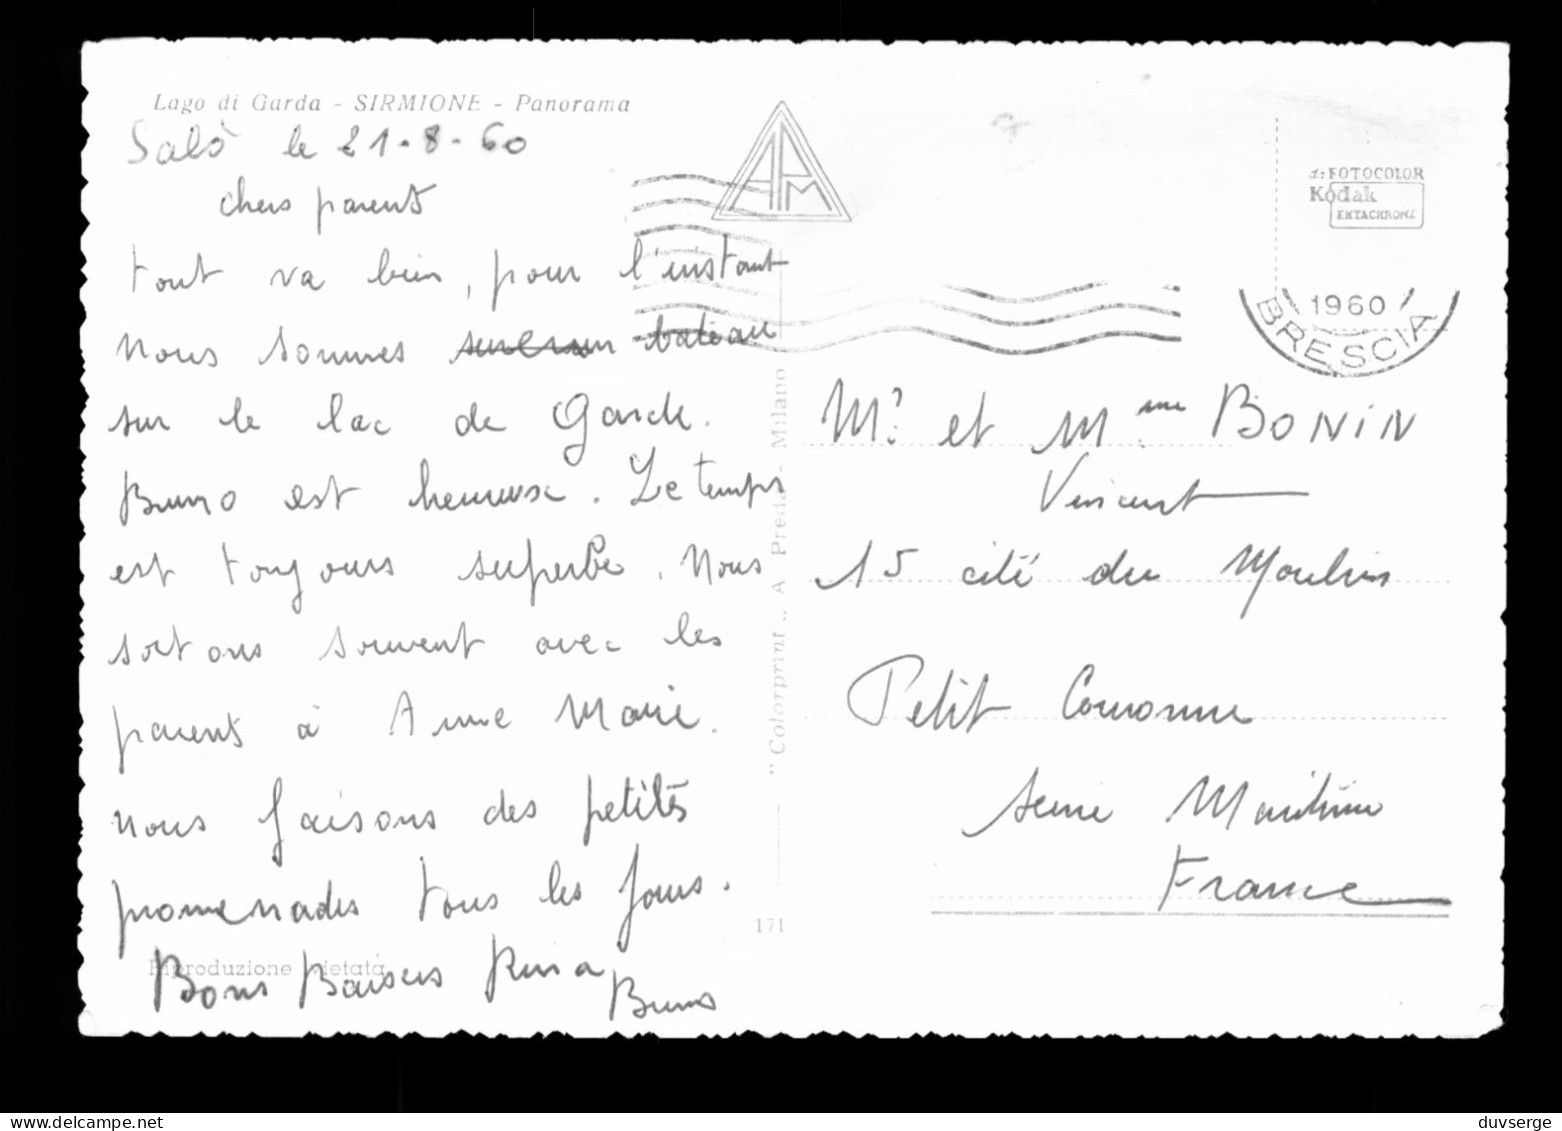 Lago di Garda - SIRMIONE - Panorama
Salò le 21-8-60
chers parents
tout va bien, pour l'instant
nous sommes bateau
sur le lac de Garde.
Bruno est heureuse. Le temps
est toujours superbe. Nous
sortons souvent avec les
parents à Anne Marie.
nous faisons des petites
promenades tous les jours.
Bons Baisers Rina
Bruno
Riproduzione vietata
"Colorprint„ A Preda - Milano
171
APM
da FOTOCOLOR
Kodak
EKTACHROME
1960
BRESCIA
Mr et Mme BONIN
Vincent
15 cité du Moulin
Petit Couronne
Seine Maritime
France
duvserge